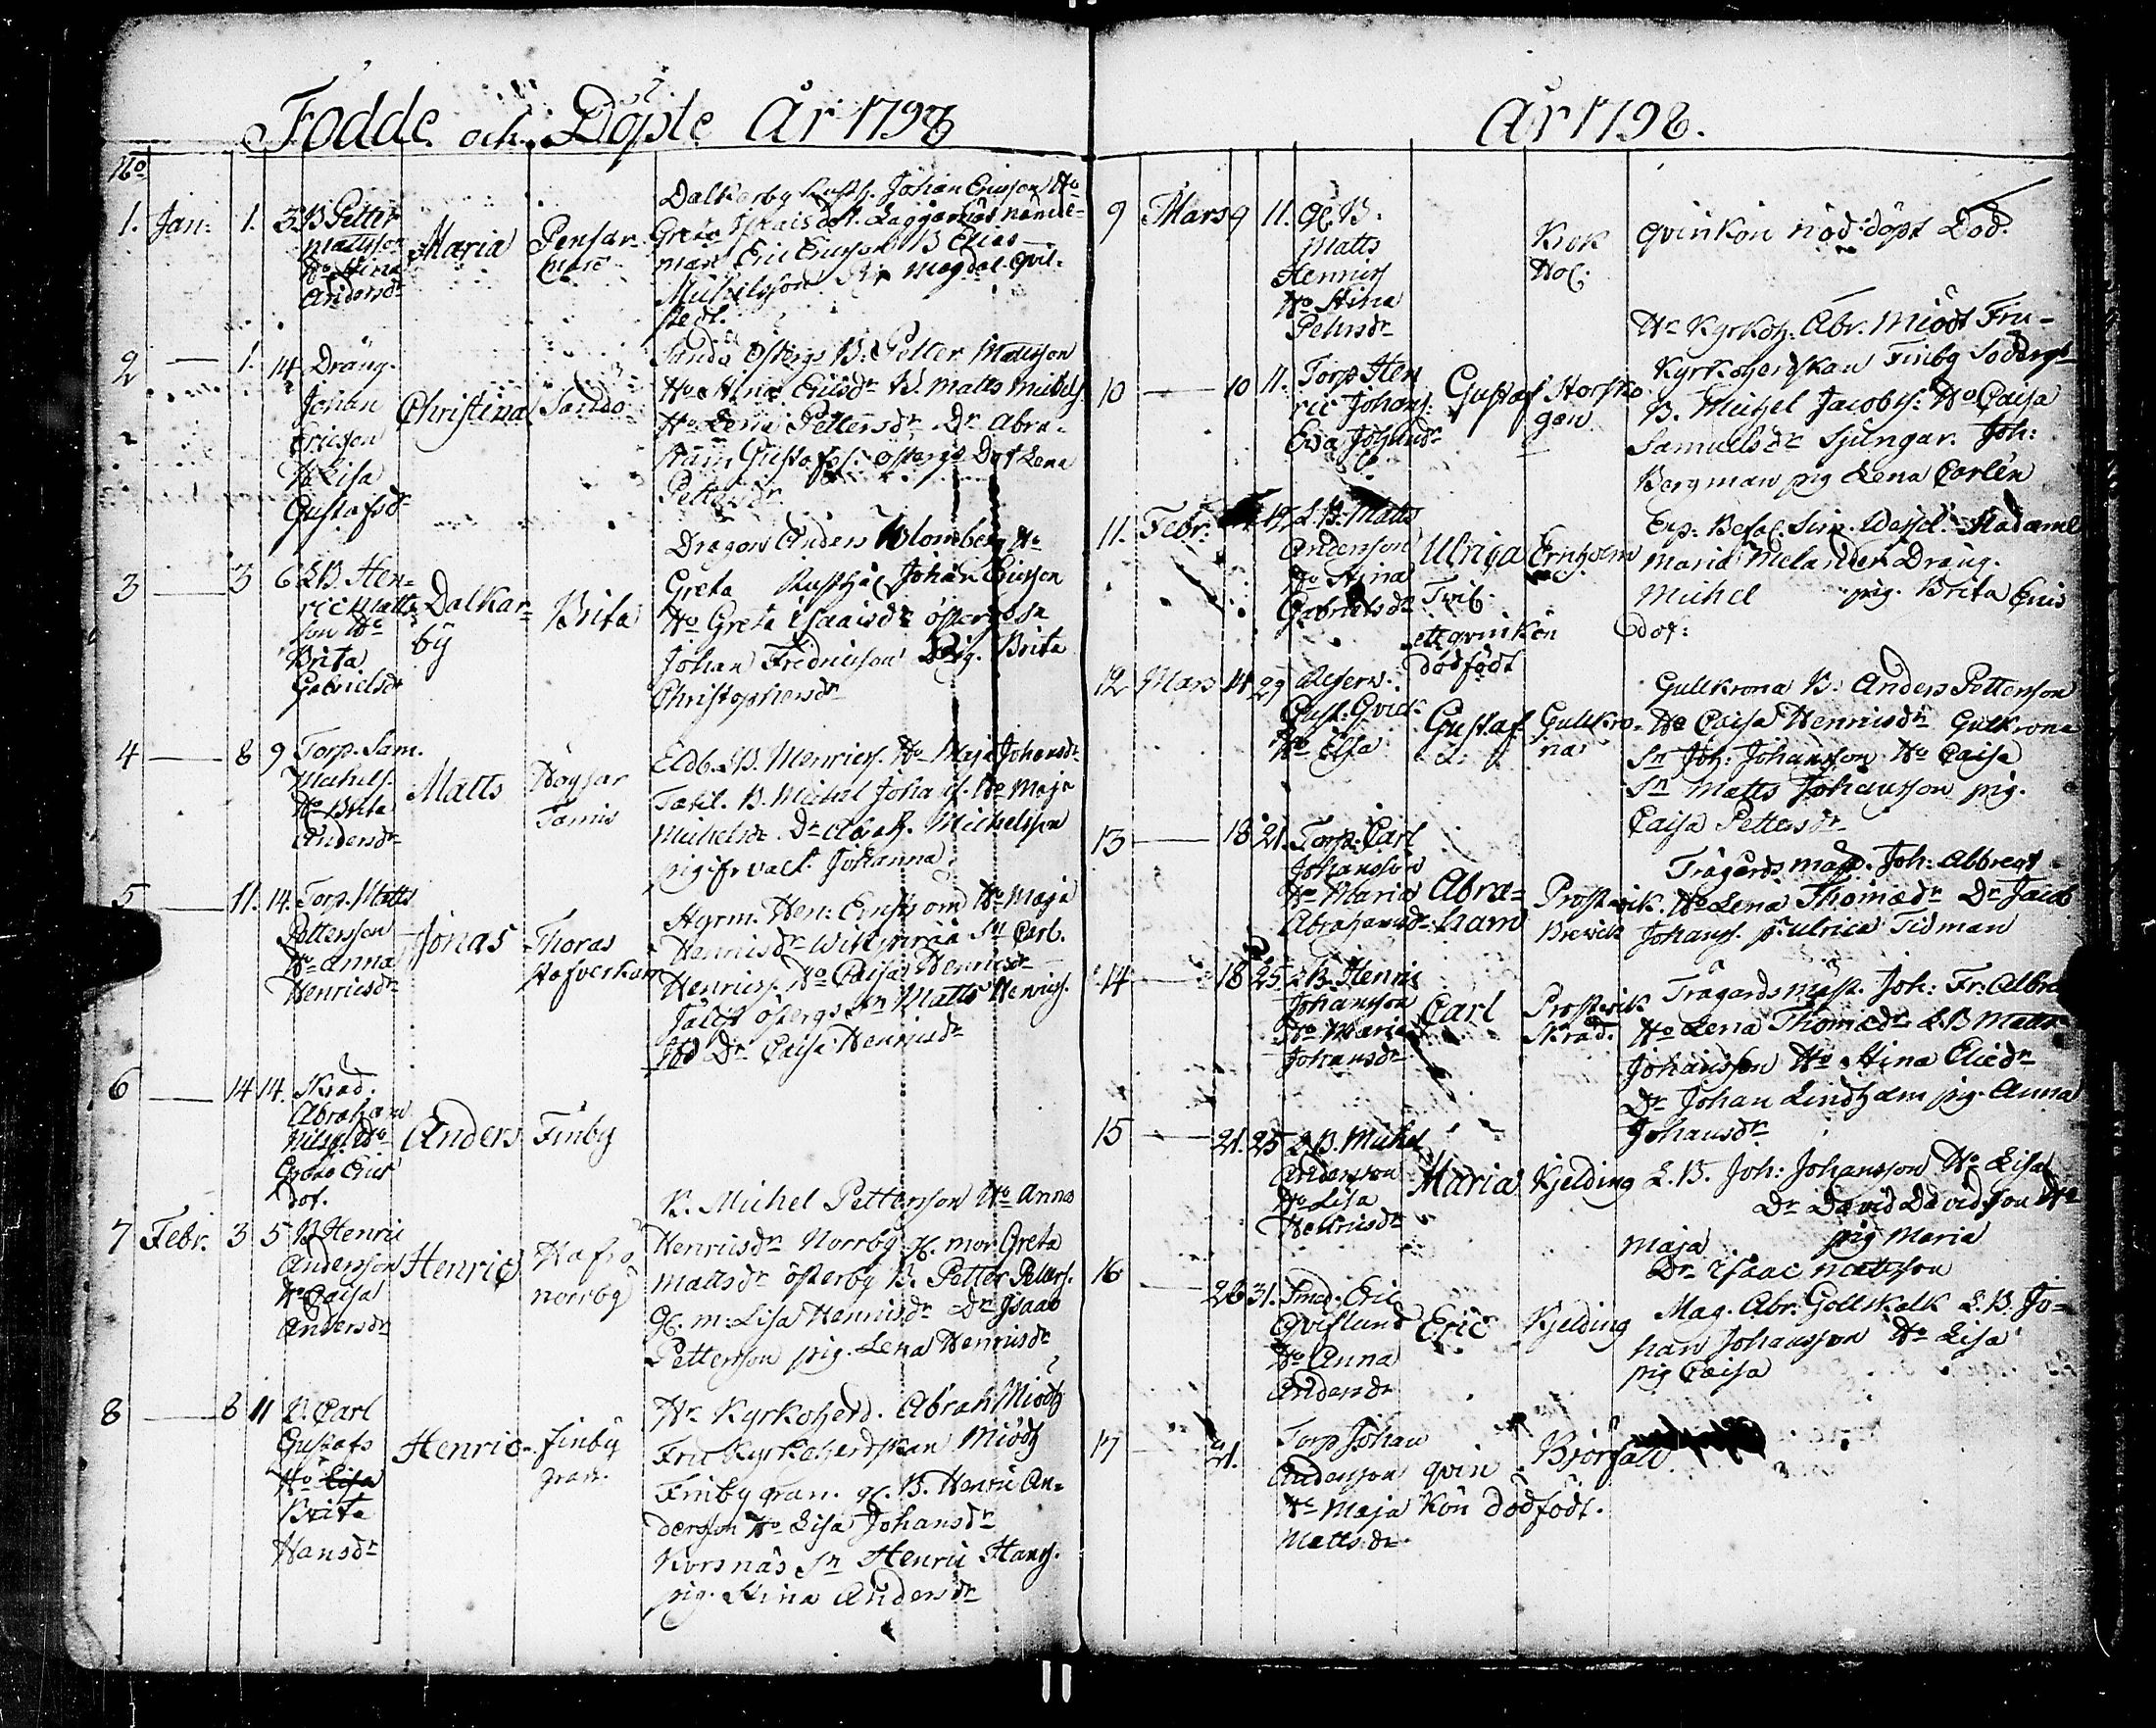 Födde och Döpte År 1798
No
1. Jan: 1. 3 B Petter
Mattsson
Ho Stina
Andersdr
Maria
Pensar
Dalkarby Rusth. Johan Ericsson Ho
Greta Isaacsdot. Laggarnäs nämde-
man Eric Ericsson B Elias
Michelsson Magdal. Qvil-
stedt.
2 — 1. 14 Dräng.
Johan
Ericson
H Lisa
Gustafsdr
Christina
Sandö
Sandö Östergs B. Petter Mattsson
Ho Stina Ericsdr B. Matts Michels.
Ho Lena Pettersdr Dr Abra-
ham Gustafss. Östergs Dot Lena
Pettersdr
3 — 3 6 L.B. Hen-
ric Matts
son Ho
Brita
Gabrielsdr
Dalkar-
by
Brita
Dragon Anders Blomberg Ho
Greta Rusthål Johan Ericsson
Ho Greta Isaacsdr Östergs
Johan Fredricsson Pig. Brita
Christophersdr
4 — 8 9 Torp. Sam.
Michels.
Ho Brita
Andersdr
Matts
Högsar
Tomis
Eldb. B. Henrics. Ho Maja Johansdr
B. Michel Johans. Ho Maja
Michelsdr. Dr Abrah. Michelsson
pig fr valt. Johanna
5 — 11. 14. Torp. Matts
Pettersson
Ho Anna
Henricsdr
Jonas
Thoras
Hafverkam
Hen: Ho Maja
Henricsdr Sn Carl.
Henrics. Ho Caisa Henricsdr
östergs Sn Matts Henrics.
Dr Caisa Henricsdr
6 — 14 14. Skräd.
Abraham
Nilss. Ho
Greta Erics
dot.
Anders
Finby
7 Febr. 3 5 B Henric
Andersson
Ho Caisa
Andersdr
Henric
Hafrö
norrby
B. Michel Pettersson Ho Anna
Henricsdr Norrby gl. mor Greta
Mattsdr österby B. Petter Peters.
gl. m: Lisa Henricsdr Dr Isaac
Pettersson pig. Lena Henricsdr
8 — 8 11 B. Carl
Gustafs
Ho Lisa
Brita
Hansdr
Henric
Finby
gran.
Hr Kyrkoherd. Abrah Miödh
Fru Kyrkoherdskan Miödh
Finby gran. gl. B. Henric An-
dersson Ho Lisa Johansdr
Korsnäs Sn Henric Hans.
pig. Stina Andersdr
År 1798.
9 Mars 9 11. gl. B.
Matts
Henrics
Ho Stina
Pehrsdr
Krok
Hol.
qvinkön nöd döpt Död.
10 — 10 11. Torp Hen
ric Johans.
Eva Johansdr
Gustaf
Storsko
gen
Hr Kyrkoh. Abr. Miödt Fru-
Kyrkoherdskan Finby Södergs
B. Michel Jacobss: Ho Caisa
Samuelsdr Ljungar. Joh:
Bergman pig Lena Corlén
11. Febr: 17 L. B. Matts
Andersson
Ho Stina
Gabrielsdr
Ulrica
Tvil.
ett qvinkön
dödfödt
Ernholm
Exp. Befal. Sim. Madame
Maria Melander Dräng.
Michel pig. Brita Erics
dot:
12 Mars 14 29
Gust: Qvick
Ho Elsa
Gustaf
Gullkro-
na
Gullkrona B. Anders Pettersson
Ho Caisa Henricsdr Gulkrona
Sn Joh: Johansson Ho Caisa
Sn Matts Johansson pig.
Caisa Pettersdr
13 — 18 21. Torp. Carl
Johansson
Ho Maria
Abrahamsdr
Abra-
ham
Prostvik.
Brewik
Trägårdsmäst. Joh: Albregt
Ho Lena Thomædr Dr Jacob
Johans. p. Ulrica Tidman
14 — 18 25 L.B. Henric
Johansson
Ho Maria
Johansdr
Carl
Prostvik
Skräd.
Trägårdsmäst. Joh: Fr: Albre
Ho Lena Thomædr L.B Matts
Johansson Ho Stina Eliædr
Dr Johan Lindholm pig. Anna
Johansdr
15 — 21. 25 L B. Michel
Andersson
Ho Lisa
Henricsdr
Maria
Kjelding
L. B. Joh: Johansson Ho Lisa
Dr David Davidson Ho
Maja pig Maria
Dr Isaac Mattsson
16 — 26 31. Smed. Eric
Qviflund
Ho Anna
Andersdr
Eric
Kjelding
Mag. Abr. Gottskalk L. B. Jo-
han Johansson Ho Lisa
pig Caisa
17 — 21. Torp Johan
Andersson
Ho Maja
Mattsdr.
qvin
kön dödfödt.
Biörsall